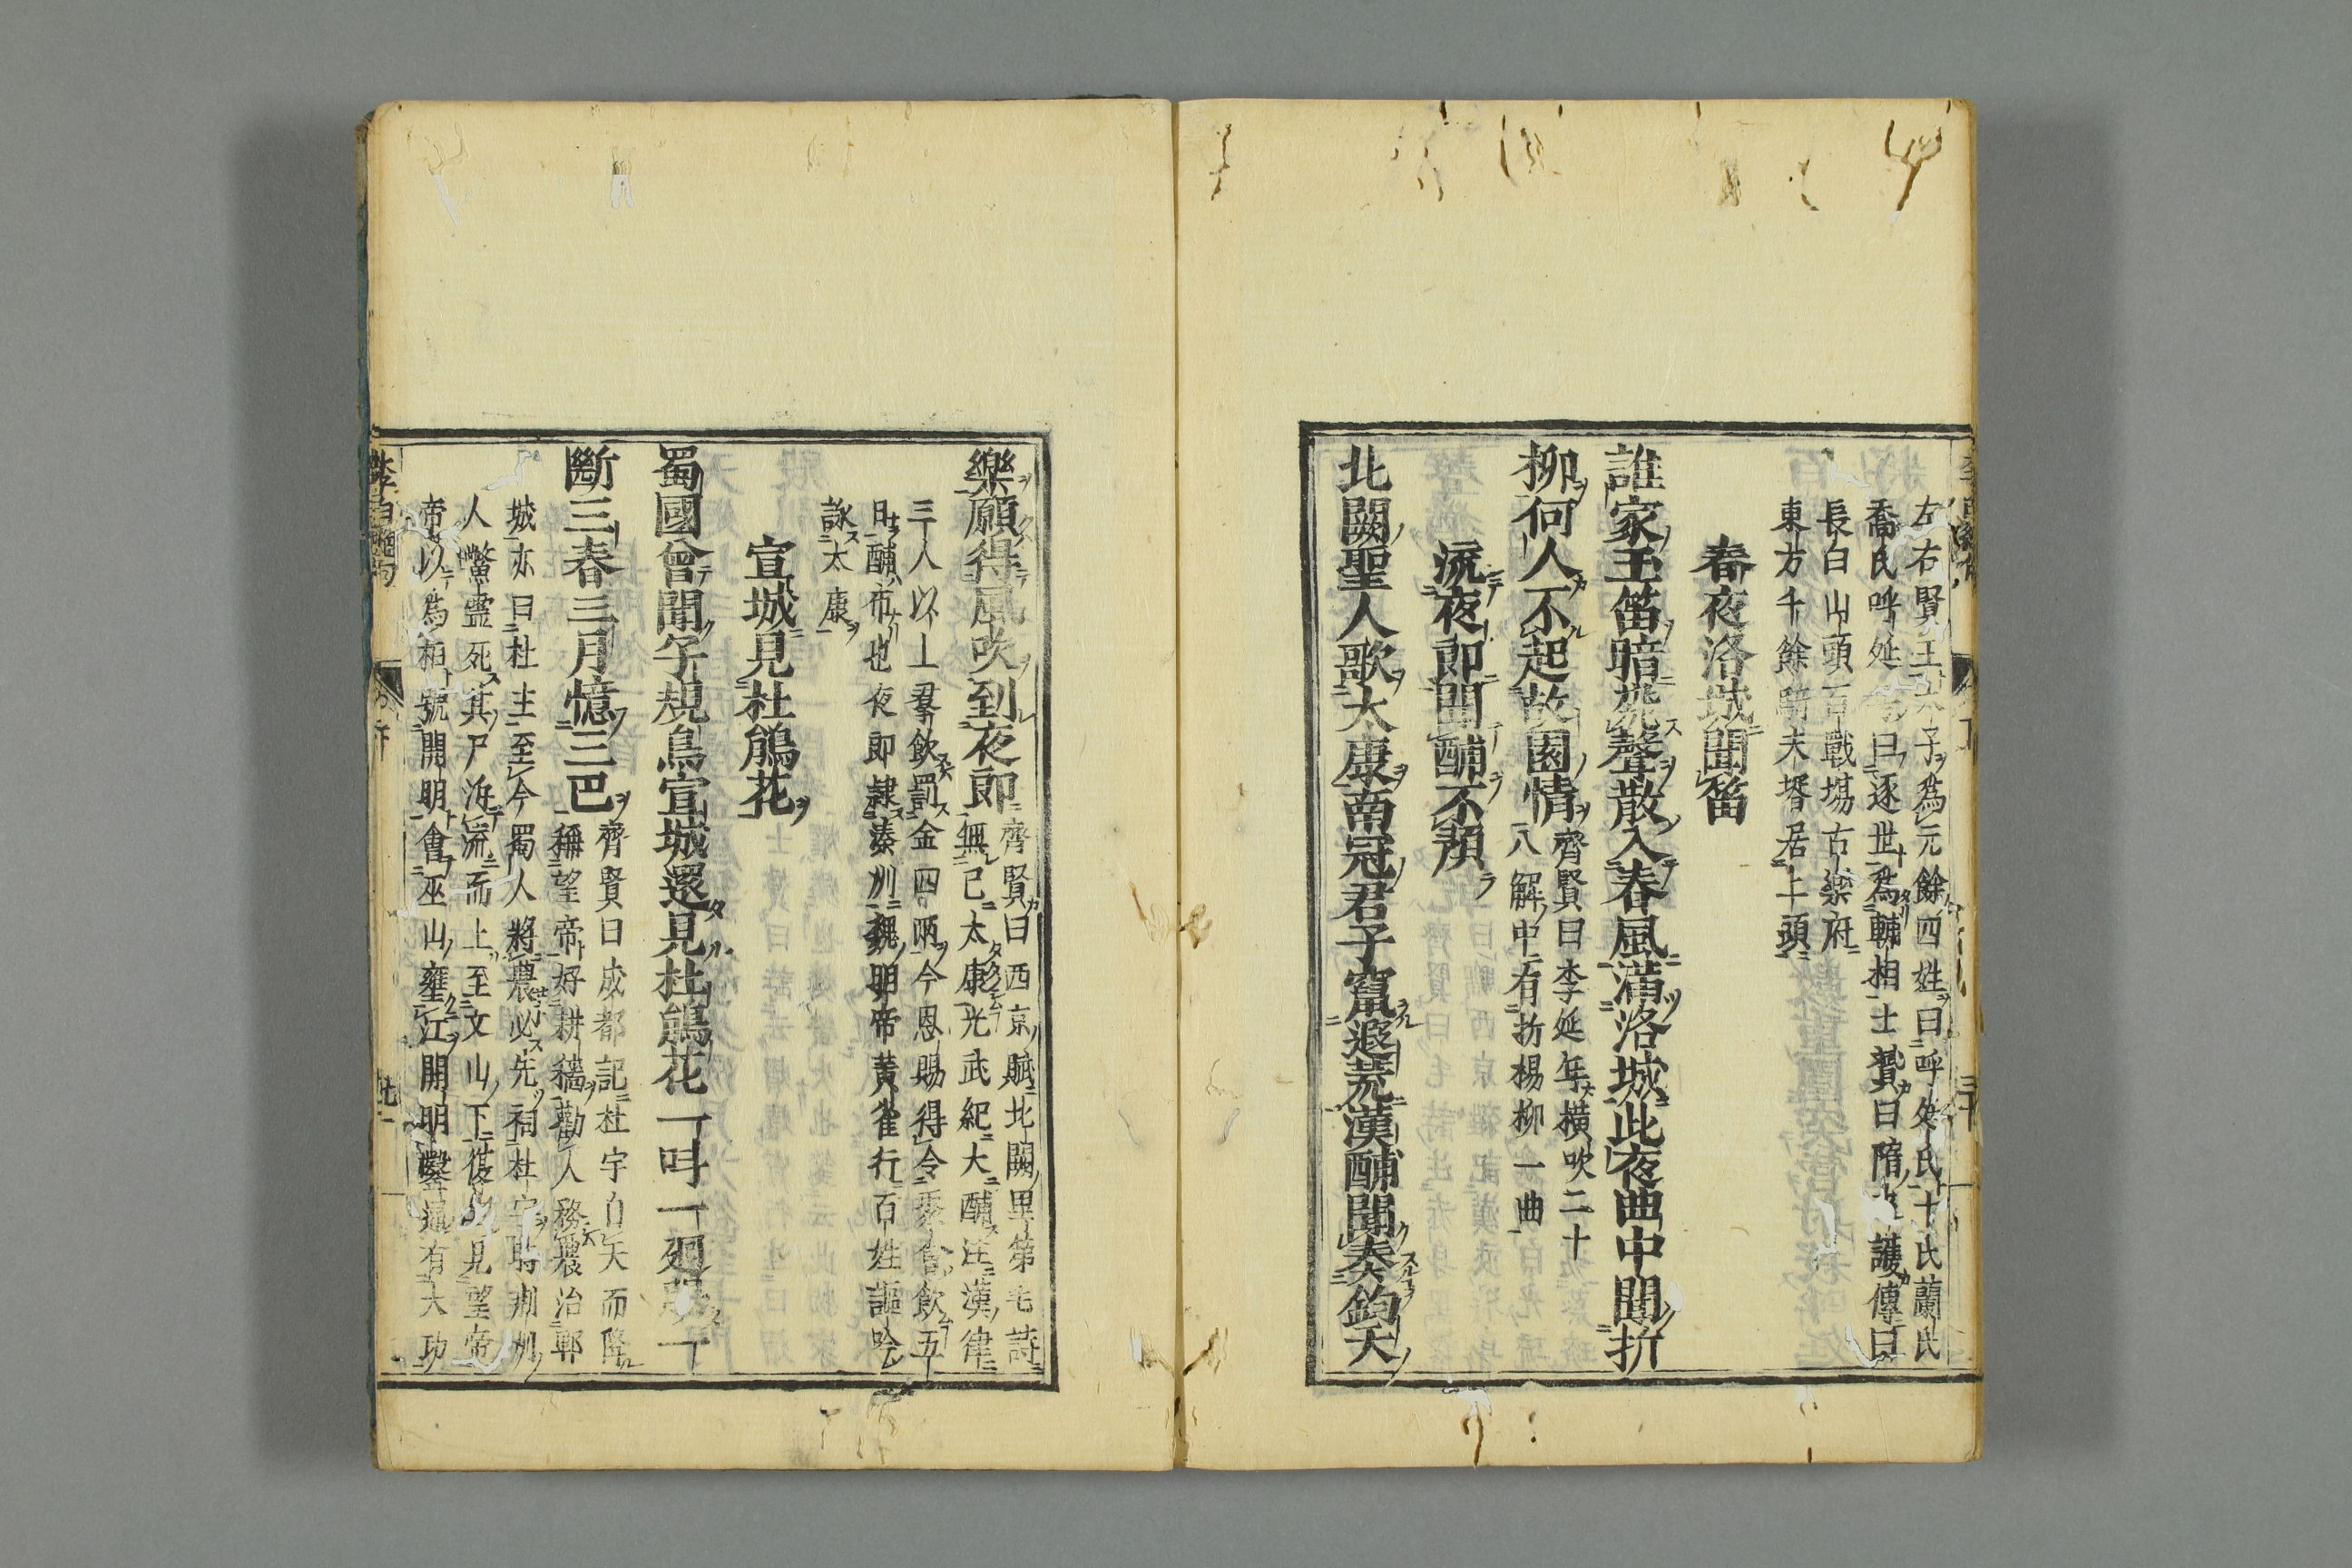 左右賢王太子爲元餘四姓曰呼延氏卜氏蘭氏
喬氏呼延曰逐世爲輔相士贇曰隋護傳曰
長白山頭百戰塲古樂府
東方千餘騎夫壻居上頭
春夜洛城聞笛
誰家玉笛暗飛聲散入春風滿洛城此夜曲中聞折
柳何人不起故園情
齊賢曰李延年橫吹二十
八解中有折楊柳一曲
流夜郎聞酺不預
北闕聖人歌太康南冠君子竄遐荒漢酺聞奏鈞天
樂願得風吹到夜郎
齊賢曰西京賦北闕甲第毛詩
無已太康光武紀大酺注漢律
三人以上羣飲罰金四兩今恩賜得令聚會飲五
日酺布也夜郎隷溱州魏明帝黄雀行百姓謳吟
詠太康
宣城見杜鵑花
蜀國曾聞子規鳥宣城還見杜鵑花一叫一廻腸一
斷三春三月憶三巴
齊賢曰成都記杜宇自天而降
稱望帝好耕穡勸人務農治郫
城亦曰杜主至今蜀人將農必先祠杜宇時荆州
人鱉靈死其尸泝流而上至文山下復見望帝
帝以爲相號開明會巫山壅江開明鑿有大功
李白絶句